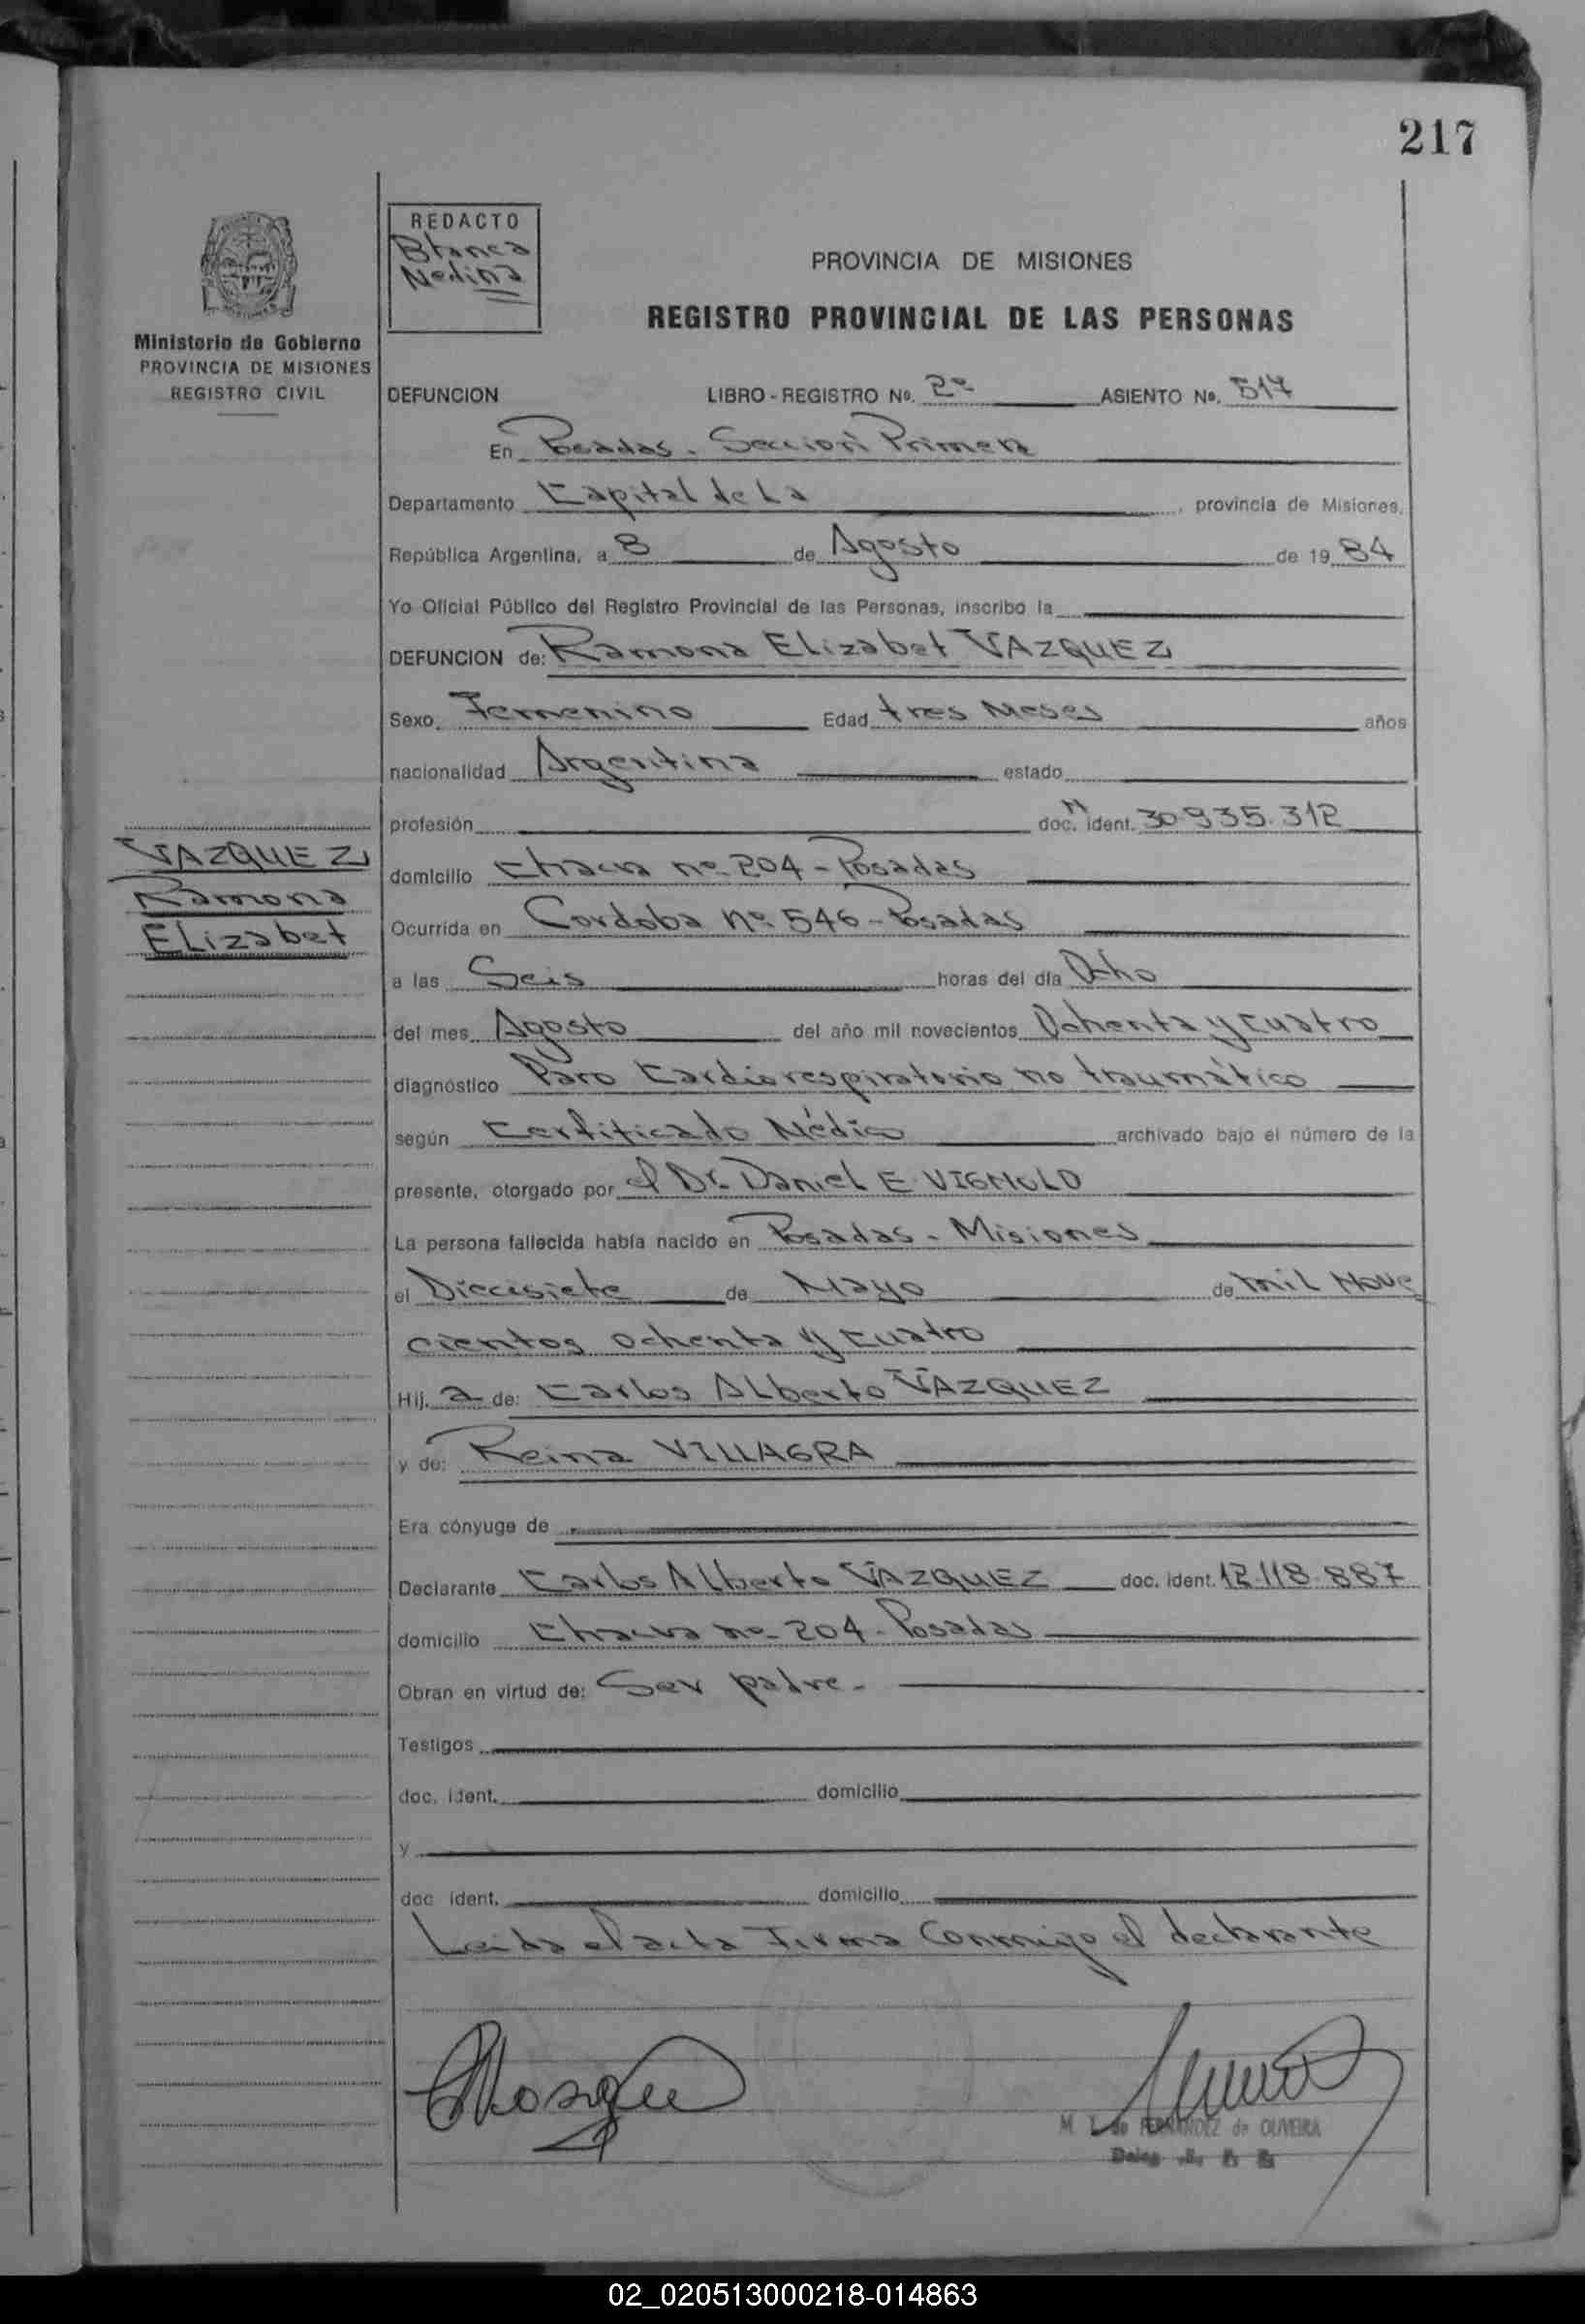 217
REDACTO
Blanca
Medina
Ministerio de Gobierno
PROVINCIA DE MISIONES
REGISTRO CIVIL
PROVINCIA DE MISIONES
REGISTRO PROVINCIAL DE LAS PERSONAS
DEFUNCION LIBRO - REGISTRO No. 2º ASIENTO No. 517
En Posadas. Sección Primera
Departamento Capital de La , provincia de Misiones,
República Argentina, a 8 de Agosto de 19 84
Yo Oficial Público del Registro Provincial de las Personas, inscribo la
DEFUNCION de: Ramona Elizabet VAZQUEZ
Sexo Femenino Edad tres Meses años
nacionalidad Argentina estado
profesión doc. ident. 30.935.312
VAZQUEZ
Ramona
Elizabet
domicilio Chacra nº 204 - Posadas
Ocurrida en Cordoba nº 546 - Posadas
a las Seis horas del día Ocho
del mes Agosto del año mil novecientos Ochenta y cuatro
diagnóstico Paro Cardiorespiratorio no traumático
según Certificado Médico archivado bajo el número de la
presente, otorgado por el Dr. Daniel E. VIGNOLO
La persona fallecida había nacido en Posadas - Misiones
el Diecisiete de Mayo de mil Nove
cientos ochenta y cuatro
Hij. a de: Carlos Alberto VAZQUEZ
y de: Reina VILLAGRA
Era cónyuge de
Declarante Carlos Alberto VAZQUEZ doc. ident. 12.118.887
domicilio Chacra nº 204 - Posadas
Obran en virtud de: Ser padre.
Testigos
doc. ident. domicilio
y
doc ident. domicilio
Leida el acta Firma Conmigo el declarante
M. L. de FERNANDEZ de OLIVEIRA
02_020513000218-014863